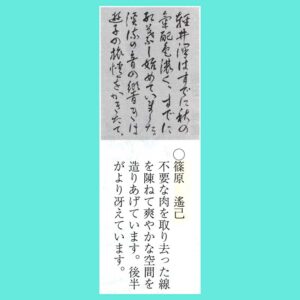 軽井澤はすでに秋の
氣配色濃く、すでに
紅葉し始めていました。
渓流の音の響きは
遊子の旅情をかきたて、
○篠原 遙己
不要な肉を取り去った線
を陳ねて爽やかな空間を
造りあげています。後半
がより冴えています。